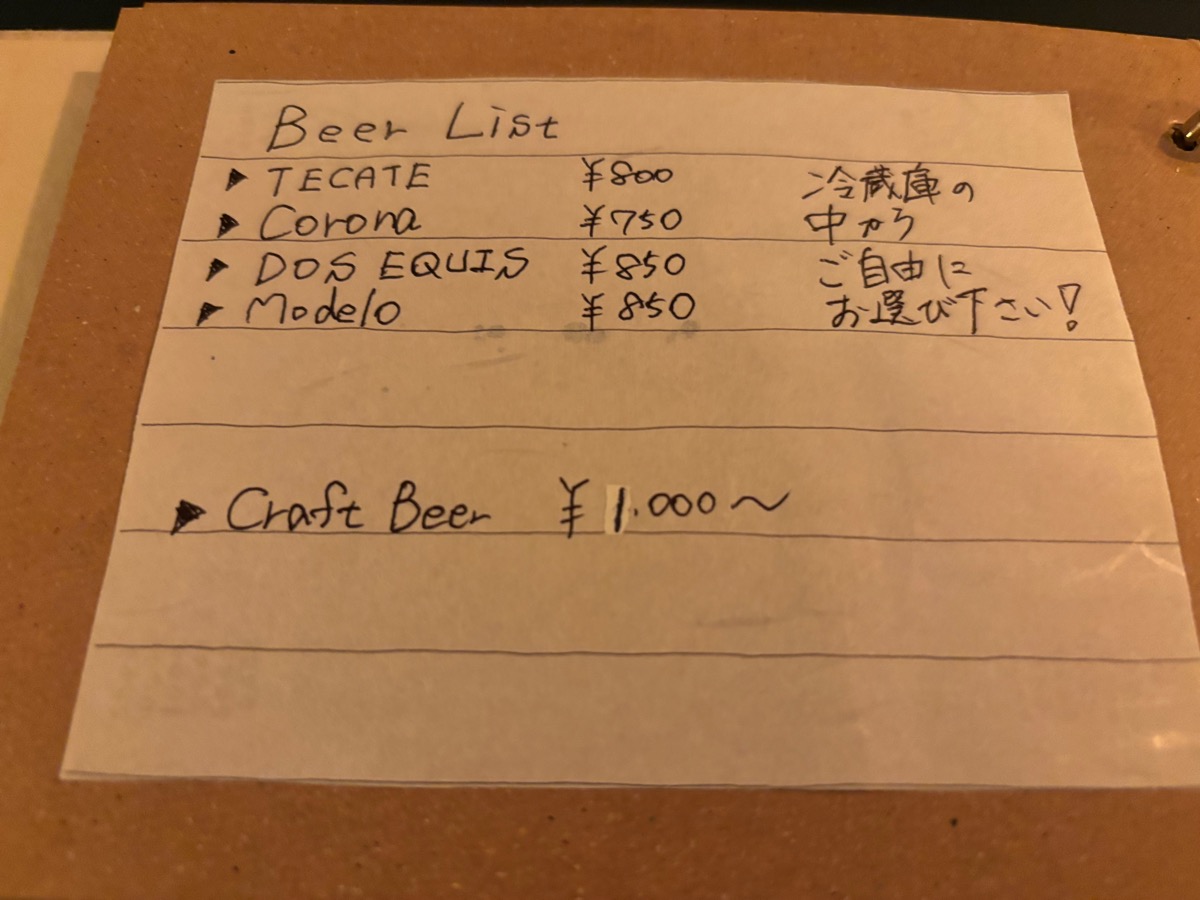 Beer List
▶ TECATE ¥800 冷蔵庫の
▶ Corona ¥750 中から
▶ DOS EQUIS ¥850 ご自由に
▶ Modelo ¥850 お選び下さい!
▶ Craft Beer ¥1.000〜